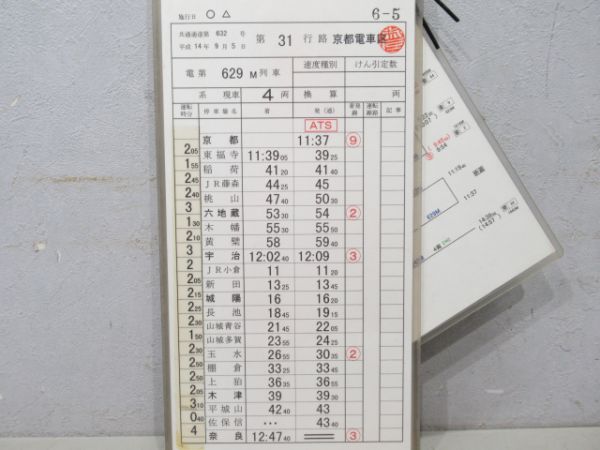 施行日 ○ △ 6-5
共通運達第 632 号
平成 14年 9月 5日
第 31 行路 京都電車区
電第 629 M 列車 速度種別 けん引定数
系 現車 4 両 換算 両
運転時分 停車場名 着 発(通) 着発線 運転線路 記事
ATS
京都 11:37 ⑨
2 05
東福寺 11:39 05 39 25
1 55
稲荷 41 20 41 40
2 45
JR藤森 44 25 45
2 40
桃山 47 40 50 30
3
六地蔵 53 30 54 ②
1 30
木幡 55 30 55 50
2 10
黄檗 58 59 40
3
宇治 12:02 40 12:09 ③
2
JR小倉 11 11 20
2 05
新田 13 25 13 45
2 15
城陽 16 16 20
2 25
長池 18 45 19 15
2 30
山城青谷 21 45 22 05
1 50
山城多賀 23 55 24 25
2 30
玉水 26 55 30 35 ②
2 50
棚倉 33 25 33 45
2 50
上狛 36 35 36 55
2 05
木津 39 39 30
3 10
平城山 42 40 43
0 40
佐保信 … 43 40
4
奈良 12:47 40 ③
11:37
629M